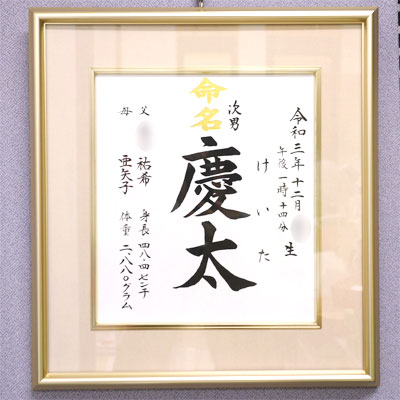 令和三年十二月
午後一時十四分
生
けいた
次男
命名
慶太
父
祐希
母
亜矢子
身長 四八・四センチ
体重 二、八八〇グラム